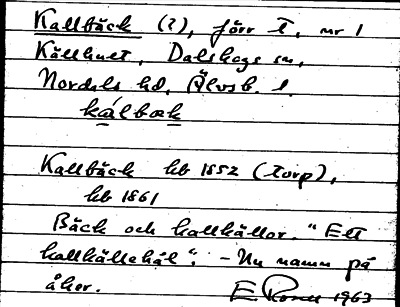 Kallbäck (?), förr T, nr 1
Källhult, Dalskogs sn,
Nordals hd, Älvsb. l.
kálbæk
Kallbäck hb 1852 (torp),
hb 1861
Bäck och kallkällor. "Ett
kallkällehål". - Nu namn på
åker.
E. 1963